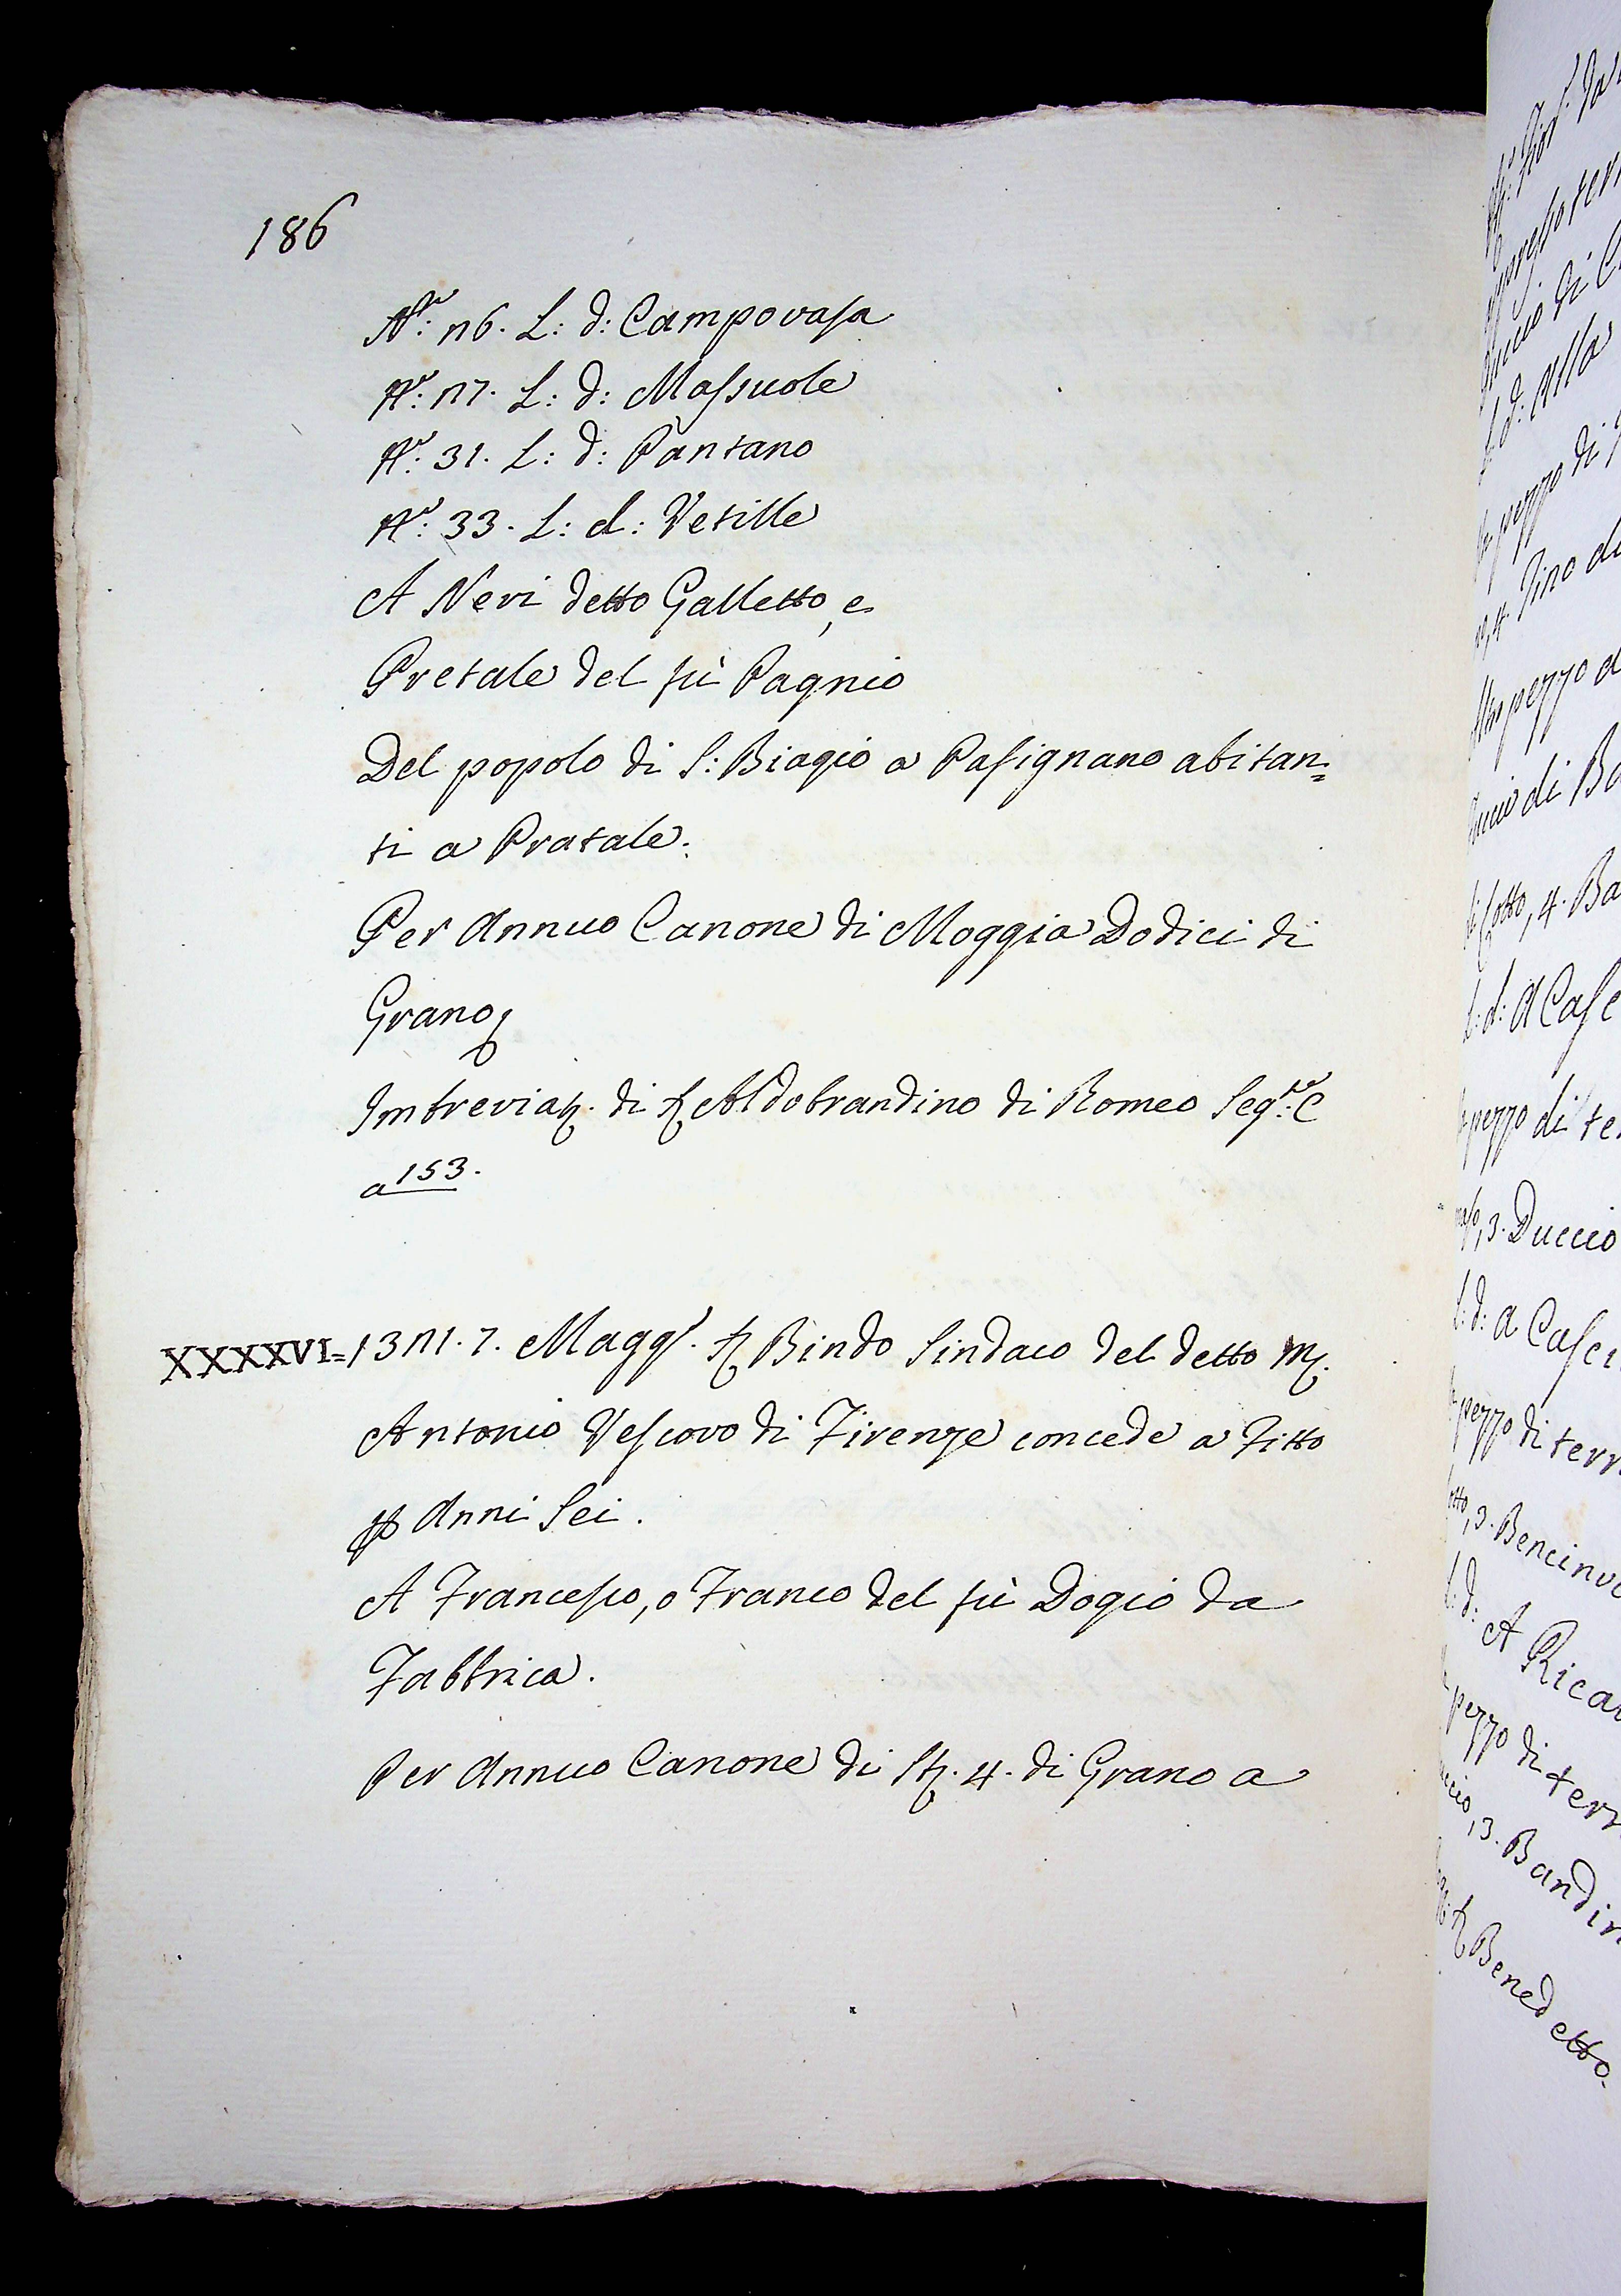 186
N.º: 26. L: d: Campovasa
N.º: 27. L: d: Massuole
N.º: 31. L: d: Pantano
N.º: 33. L: d: Vetille
A Neri detto Galletto, e
Pretale del fù Pagnio
Del popolo di S: Biagio a Pasignano abitan=
ti a Pratale.
Per Annuo Canone di Moggia Dodici di
Grano
Imbreviaz. di Aldobrandino di Romeo Seg.to: C
a 153.
XXXXVI = 1321. 7. Magg.º Bindo Sindaco del detto M.
Antonio Vescovo di Firenze concede a Fitto
p Anni Sei.
A Francesco, o Franco del fù Dogio da
Fabbrica.
Per Annuo Canone di St. 4. di Grano a
presso terr
d: Alla
pezzo di
4. Fino di
pezzo d
di Ba
sotto, 4. Ba
L: d: A Casc
pezzo di te
3. Duccio
L: d: a Casci
pezzo di terr
3. Bencinve
L: d: A Rica
pezzo di terr
3. Bandin
Benedetto.